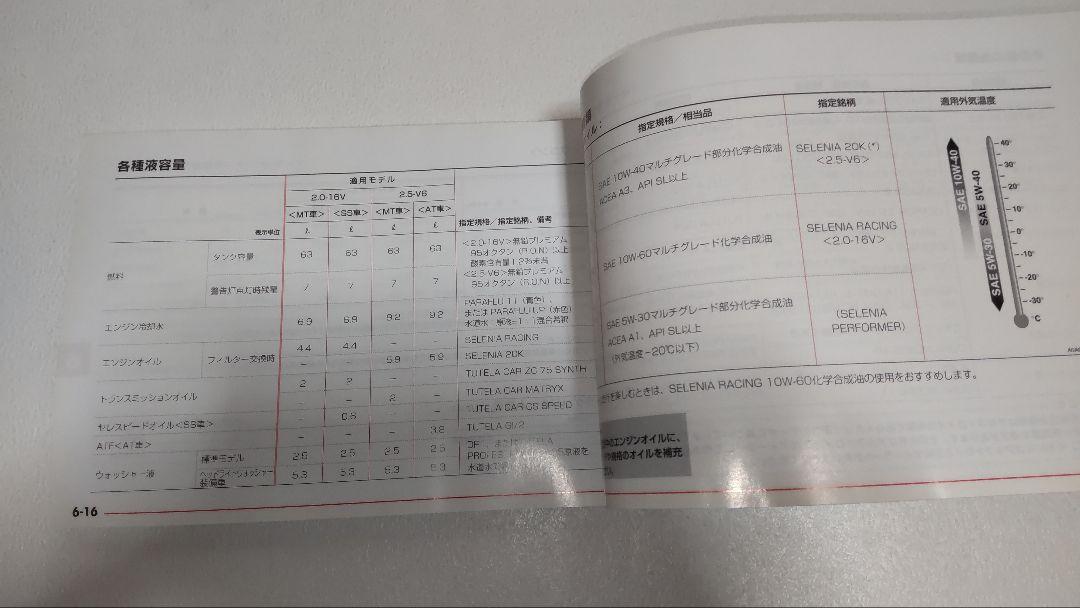 各種液容量
適用モデル
2.0-16V 2.5-V6
<MT車> <SS車> <MT車> <AT車> 指定規格/指定銘柄、備考
表示単位 ℓ ℓ ℓ ℓ
燃料 タンク容量 63 63 63 63 <2.0-16V>無鉛プレミアム
95オクタン (R.O.N) 以上
<2.5-V6>無鉛プレミアム
警告灯点灯時残量 7 7 7 7 95オクタン (R.O.N) 以上
エンジン冷却水 6.9 6.9 9.2 9.2 PARAFLU 11 (青色)、
またはPARAFLU UP (赤色)
エンジンオイル フィルター交換時 4.4 4.4 – – SELENIA RACING
– – 5.9 5.9 SELENIA 20K
トランスミッションオイル 2 2 – – TUTELA CAR ZC 75 SYNTH
– – 2 – TUTELA CAR MATRYX
セレスピードオイル<SS車> – 0.8 – – TUTELA CAR CS SPEED
ATF<AT車> – – – 3.8 TUTELA GI/2
ウォッシャー液 標準モデル 2.5 2.5 2.5 2.5
ヘッドライトウォッシャー
装備車 5.3 5.3 5.3 5.3
6-16
指定規格/相当品 指定銘柄 適用外気温度
SAE 10W-40マルチグレード部分化学合成油
ACEA A3、API SL以上
SELENIA 20K (*)
<2.5-V6>
SAE 10W-60マルチグレード化学合成油
SELENIA RACING
<2.0-16V>
SAE 5W-30マルチグレード部分化学合成油
ACEA A1、API SL以上
(外気温度-20℃以下)
(SELENIA
PERFORMER)
SAE 10W-40
SAE 5W-40
SAE 5W-30
40°
30°
20°
10°
0°
-10°
-20°
-30°
°C
を楽しむときは、SELENIA RACING 10W-60化学合成油の使用をおすすめします。
中のエンジンオイルに、
規格のオイルを補充